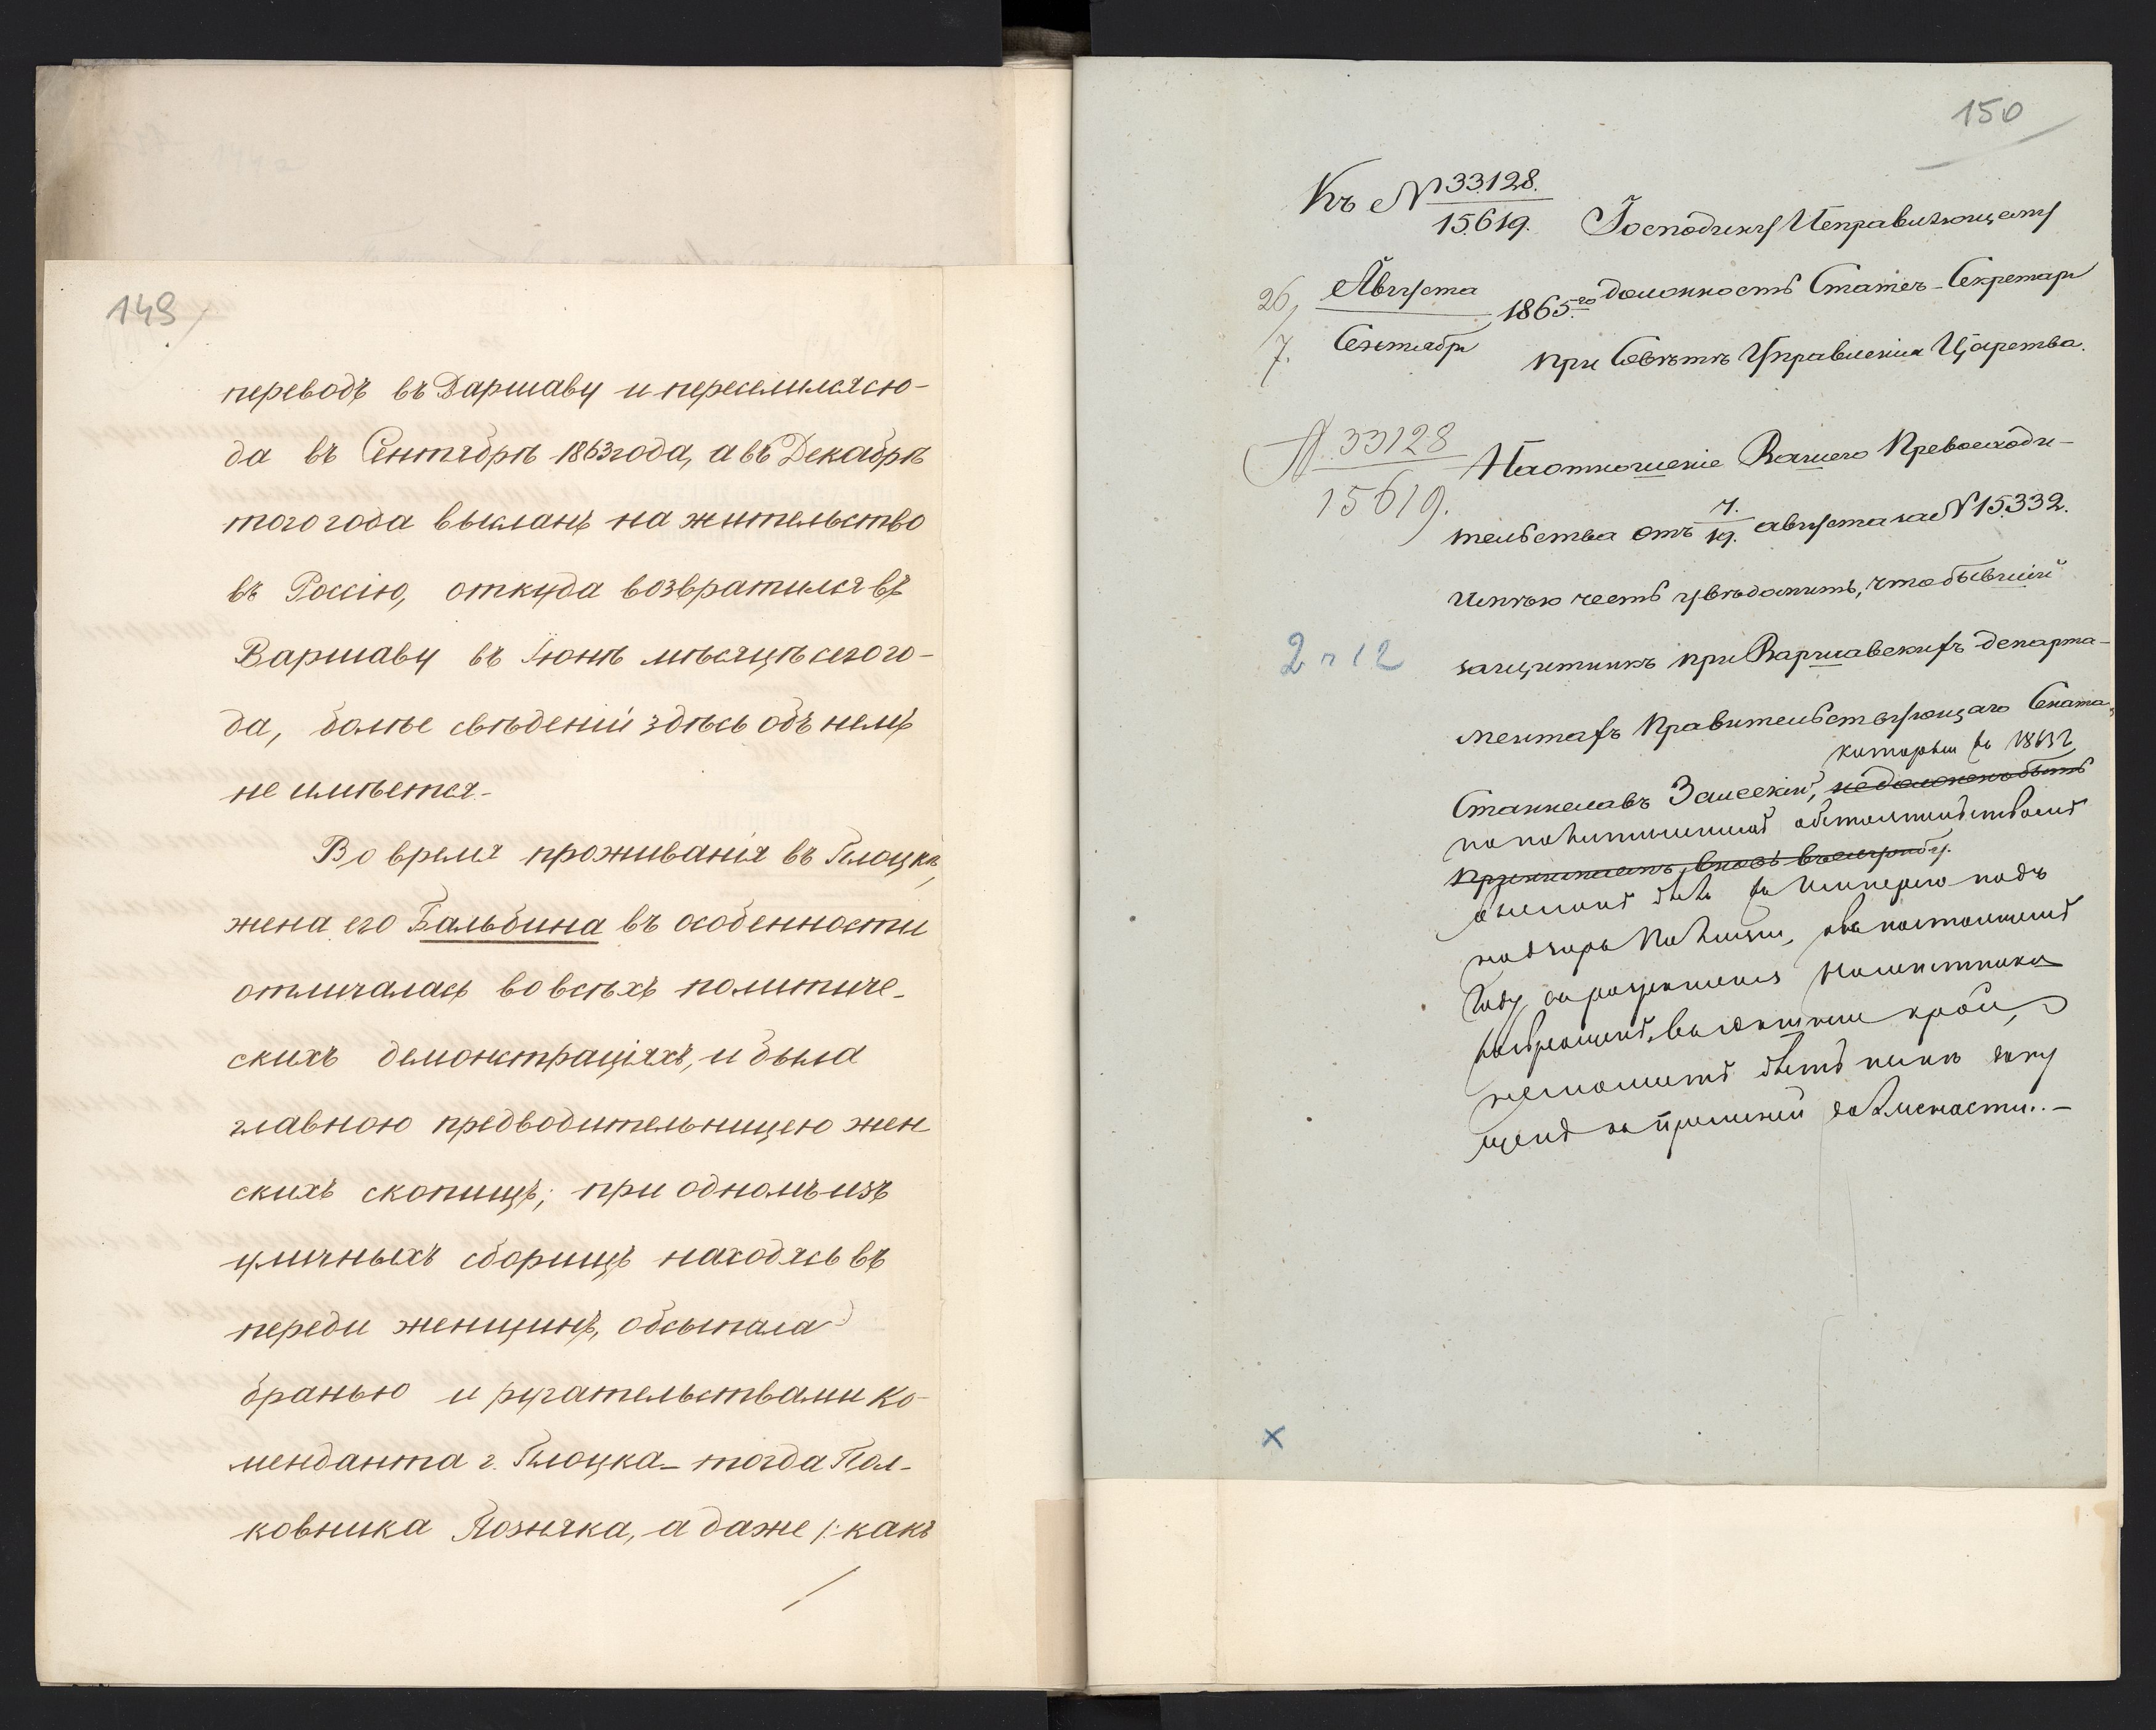 149
переводъ въ Варшаву и переселился сю-
да въ Сентябрѣ 1863 года, а въ Декабрѣ
того года высланъ на жительство
въ Россію, откуда возвратился въ
Варшаву въ Іюнѣ мѣсяцѣ сего го-
да, болѣе свѣденій здѣсь объ немъ
не имѣется.
Во время проживанія въ Плоцкѣ,
жена его Бальбина въ особенности
отличалась во всѣхъ политиче-
скихъ демонстраціяхъ, и была
главною предводительницею жен-
скихъ скопищъ; при одномъ изъ
уличныхъ сборищъ находясь въ
переди женщинъ, обсыпала
бранью и ругательствами Ко-
менданта г. Плоцка - тогда Пол-
ковника Позняка, а даже /: какъ
150
Къ № 33128.
15619.
Господину Исправляющему
26/7. Августа Сентября 1865го должность Статсъ-Секретаря
при Совѣтѣ Управленія Царства.
№ 33128
15619.
На отношеніе Вашего Превосходи-
тельства отъ 7./19. августа за № 15332.
Имѣю честь увѣдомить, что бывшій
2 ч 12
защитникъ при Варшавскихъ Департа-
ментахъ Правительствующаго Сената,
который въ 1863 г.
Станиславъ Залескій, не долженъ быть
по политическимъ обстоятельствамъ
принимаемъ вновь въ службу.
высланъ былъ въ Имперію подъ
надзоръ Полиціи, а въ настоящемъ
году съ разрѣшенія Намѣстника
возвращенъ въ здѣшній край,
не можетъ быть нынѣ
къ прежней должности. -